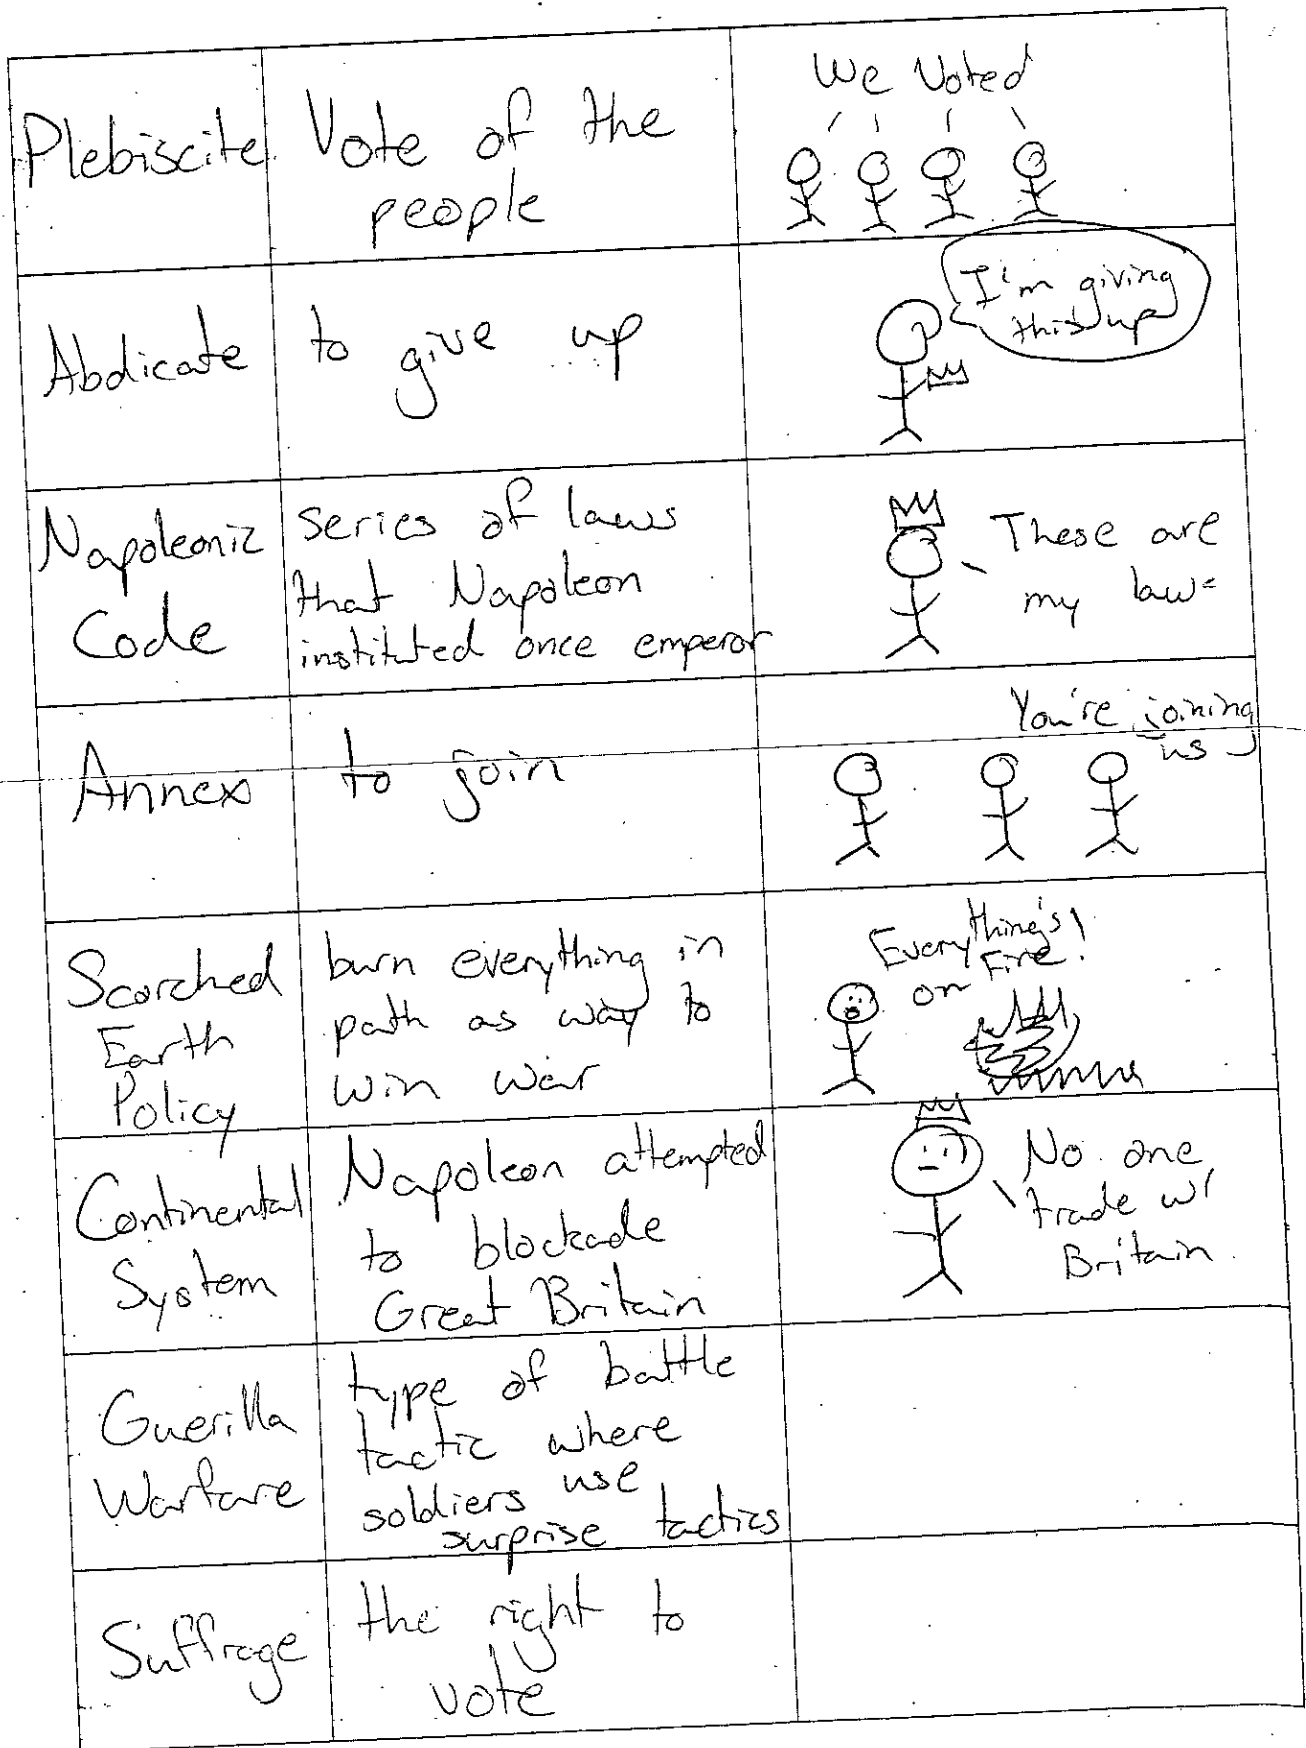 Plebiscite
Vote of the
people
We Voted
Abdicate
to give up
I'm giving
this up
Napoleonic
Code
series of laws
that Napoleon
instituted once emperor
These are
my laws
Annex
to join
You're joining
us
Scorched
Earth
Policy
burn everything in
path as way to
win war
Everything's
on Fire!
Continental
System
Napoleon attempted
to blockade
Great Britain
No one
trade w/
Britain
Guerilla
Warfare
type of battle
tactic where
soldiers use
surprise tactics
Suffrage
the right to
vote